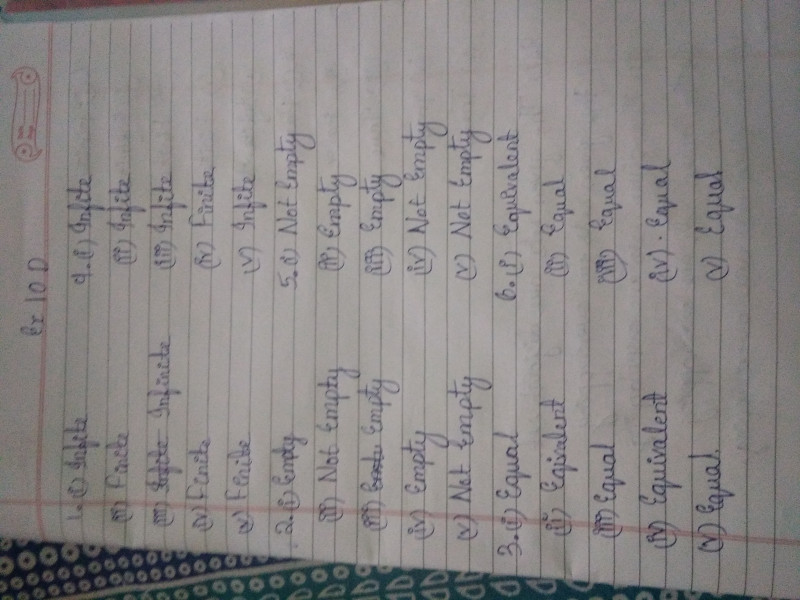 Ex 10 D
1. (i) Infite
(ii) Finite
(iii) Infite Infinite
(iv) Finite
(v) Finite
2. (i) Empty
(ii) Not Empty
(iii) Empty
(iv) Empty
(v) Not Empty
3. (i) Equal
(ii) Eqivalent
(iii) Equal
(iv) Equivalent
(v) Equal
4. (i) Infite
(ii) Infite
(iii) Infite
(iv) Finite
(v) Infite
5. (i) Not Empty
(ii) Empty
(iii) Empty
(iv) Not Empty
(v) Not Empty
6. (i) Equivalent
(ii) Equal
(iii) Equal
(iv) . Equal
(v) Equal